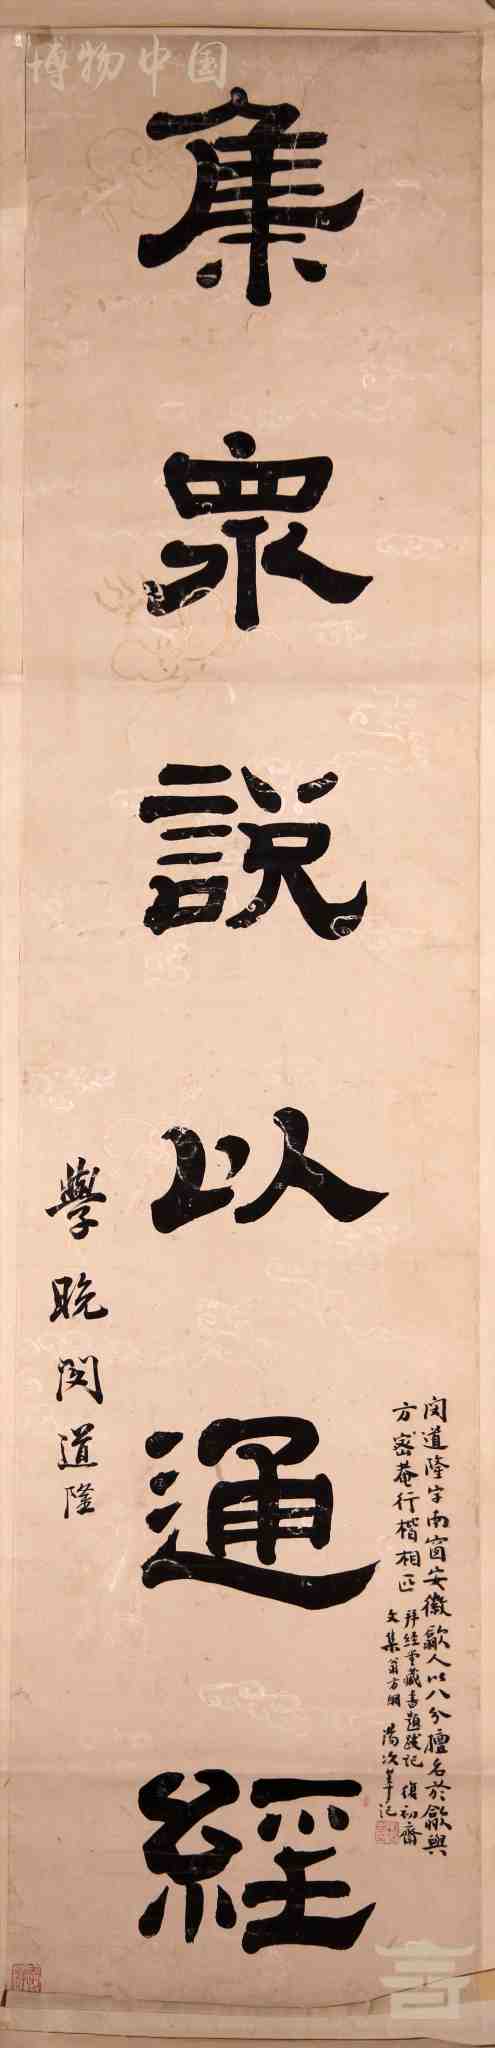 博物中国
集衆說以通經
閔道隆字南窗安徽歙人以八分擅名於歙與
方密菴行楷相匹
拜經堂藏書題跋記 復初齋
文集翁方綱
學晚閔道隆